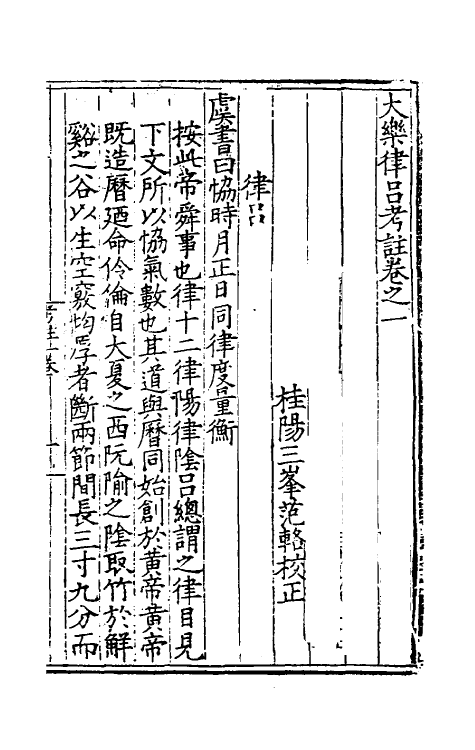 大樂律呂考註卷之一
桂陽三峯范輅校正
律呂
虞書曰協時月正日同律度量衡
按此帝舜事也律十二律陽律陰呂總謂之律目見
下文所以協氣數也其道與曆同始創於黃帝黃帝
既造曆廼命伶倫自大夏之西阮隃之陰取竹於嶰
谿之谷以生空竅均厚者斷兩節間長三寸九分而
考註卷一